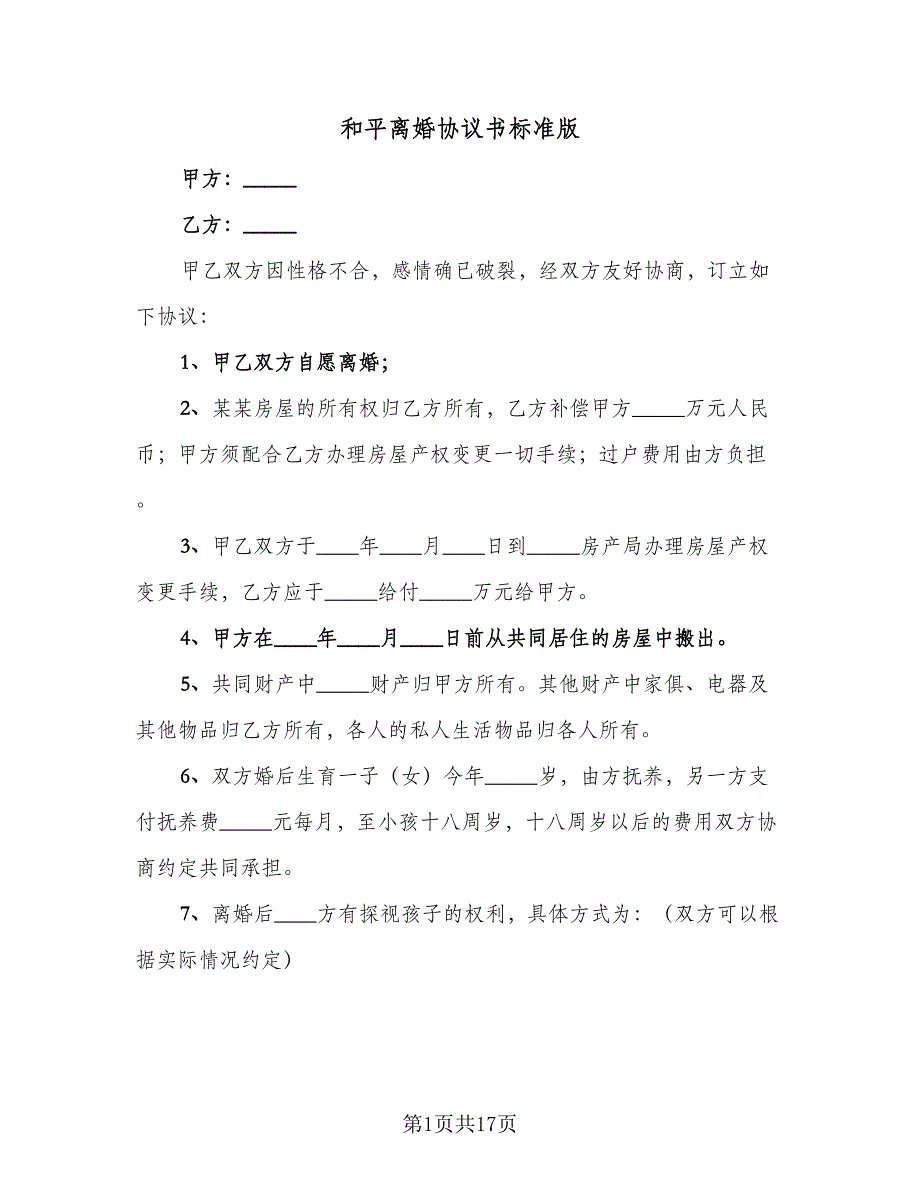 和平离婚协议书标准版
甲方：_____
乙方：_____
甲乙双方因性格不合，感情确已破裂，经双方友好协商，订立如
下协议：
1、甲乙双方自愿离婚；
2、某某房屋的所有权归乙方所有，乙方补偿甲方_____万元人民
币；甲方须配合乙方办理房屋产权变更一切手续；过户费用由方负担
。
3、甲乙双方于____年____月____日到_____房产局办理房屋产权
变更手续，乙方应于_____给付_____万元给甲方。
4、甲方在____年____月____日前从共同居住的房屋中搬出。
5、共同财产中_____财产归甲方所有。其他财产中家俱、电器及
其他物品归乙方所有，各人的私人生活物品归各人所有。
6、双方婚后生育一子（女）今年_____岁，由方抚养，另一方支
付抚养费_____元每月，至小孩十八周岁，十八周岁以后的费用双方协
商约定共同承担。
7、离婚后____方有探视孩子的权利，具体方式为：（双方可以根
据实际情况约定）
第1页共17页